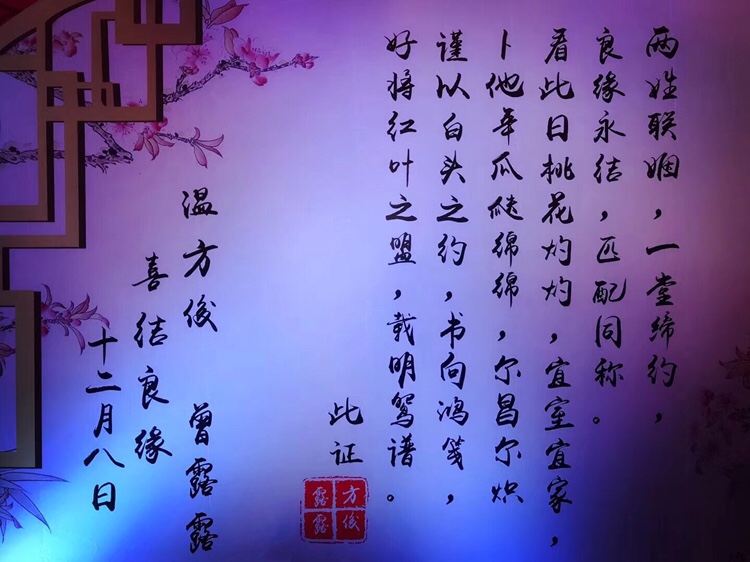 两姓联姻，一堂缔约，
良缘永结，匹配同称。
看此日桃花灼灼，宜室宜家，
卜他年瓜瓞绵绵，尔昌尔炽
谨以白头之约，书向鸿笺，
好将红叶之盟，载明鸳谱。
此证
方俊
露露
温方俊 曾露露
喜结良缘
十二月八日